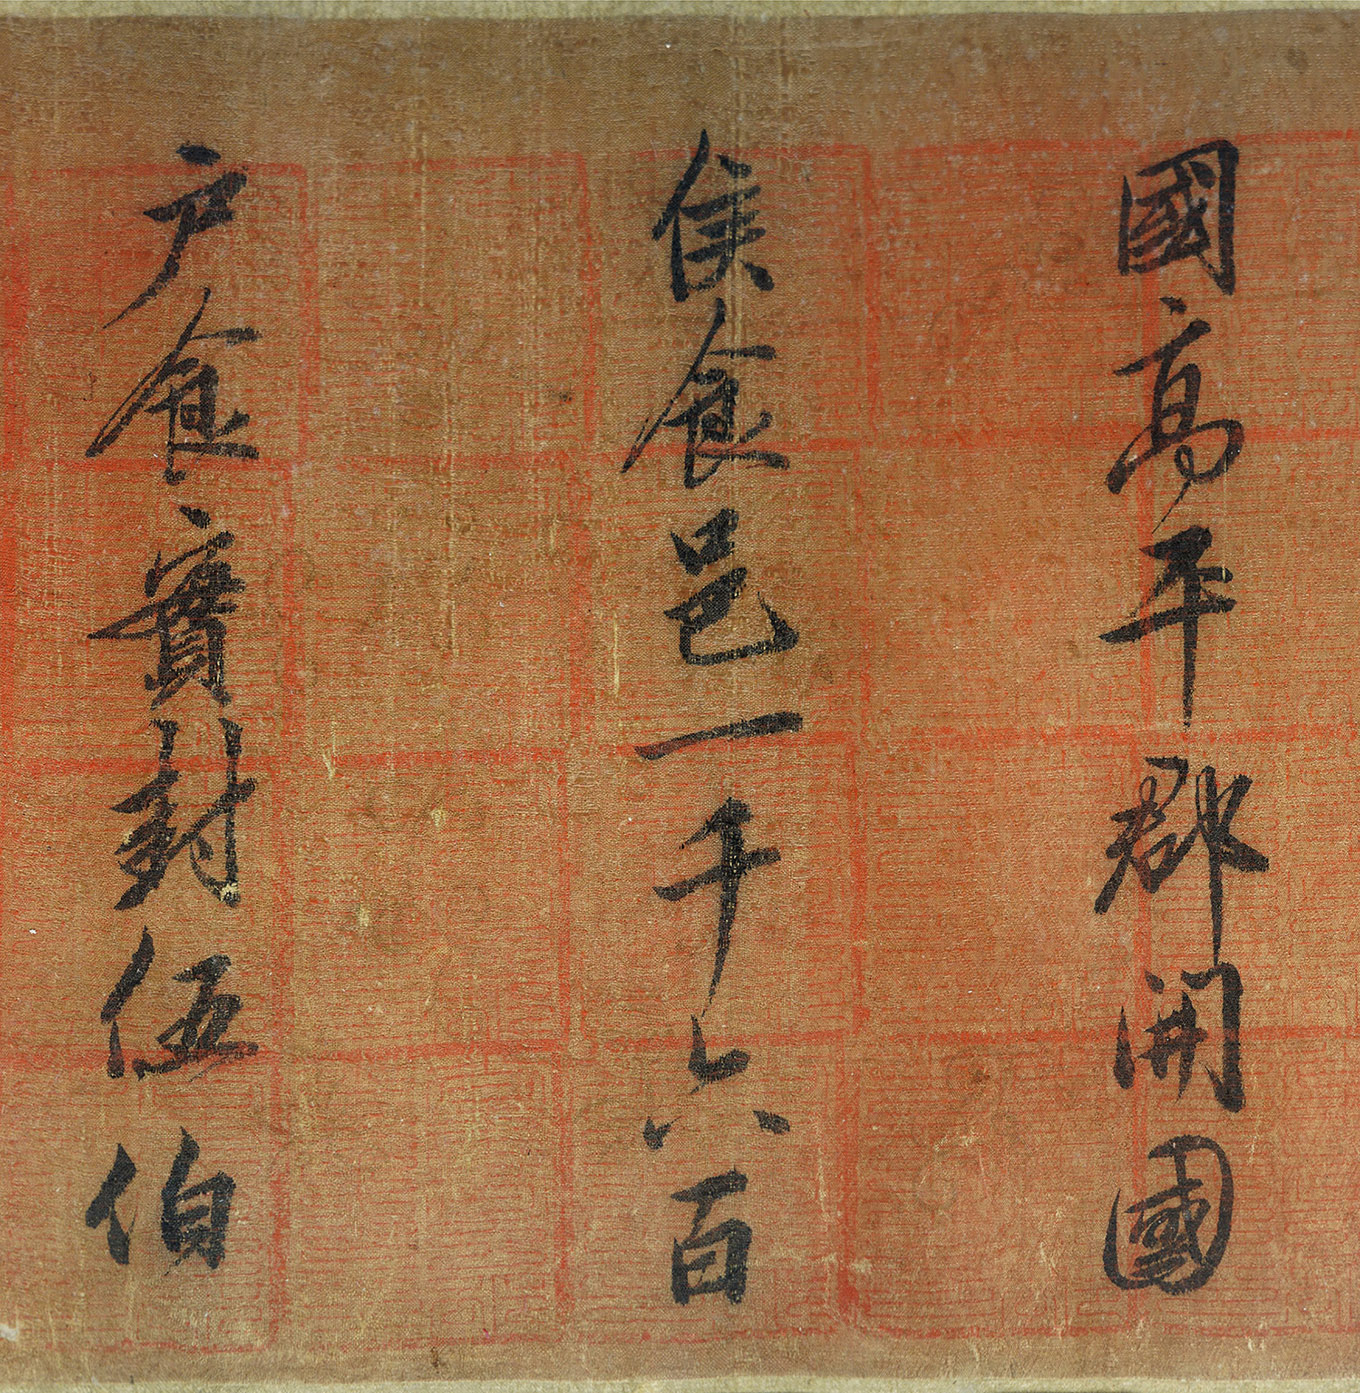 國高平郡開國
侯食邑一千六百
户食實封伍伯